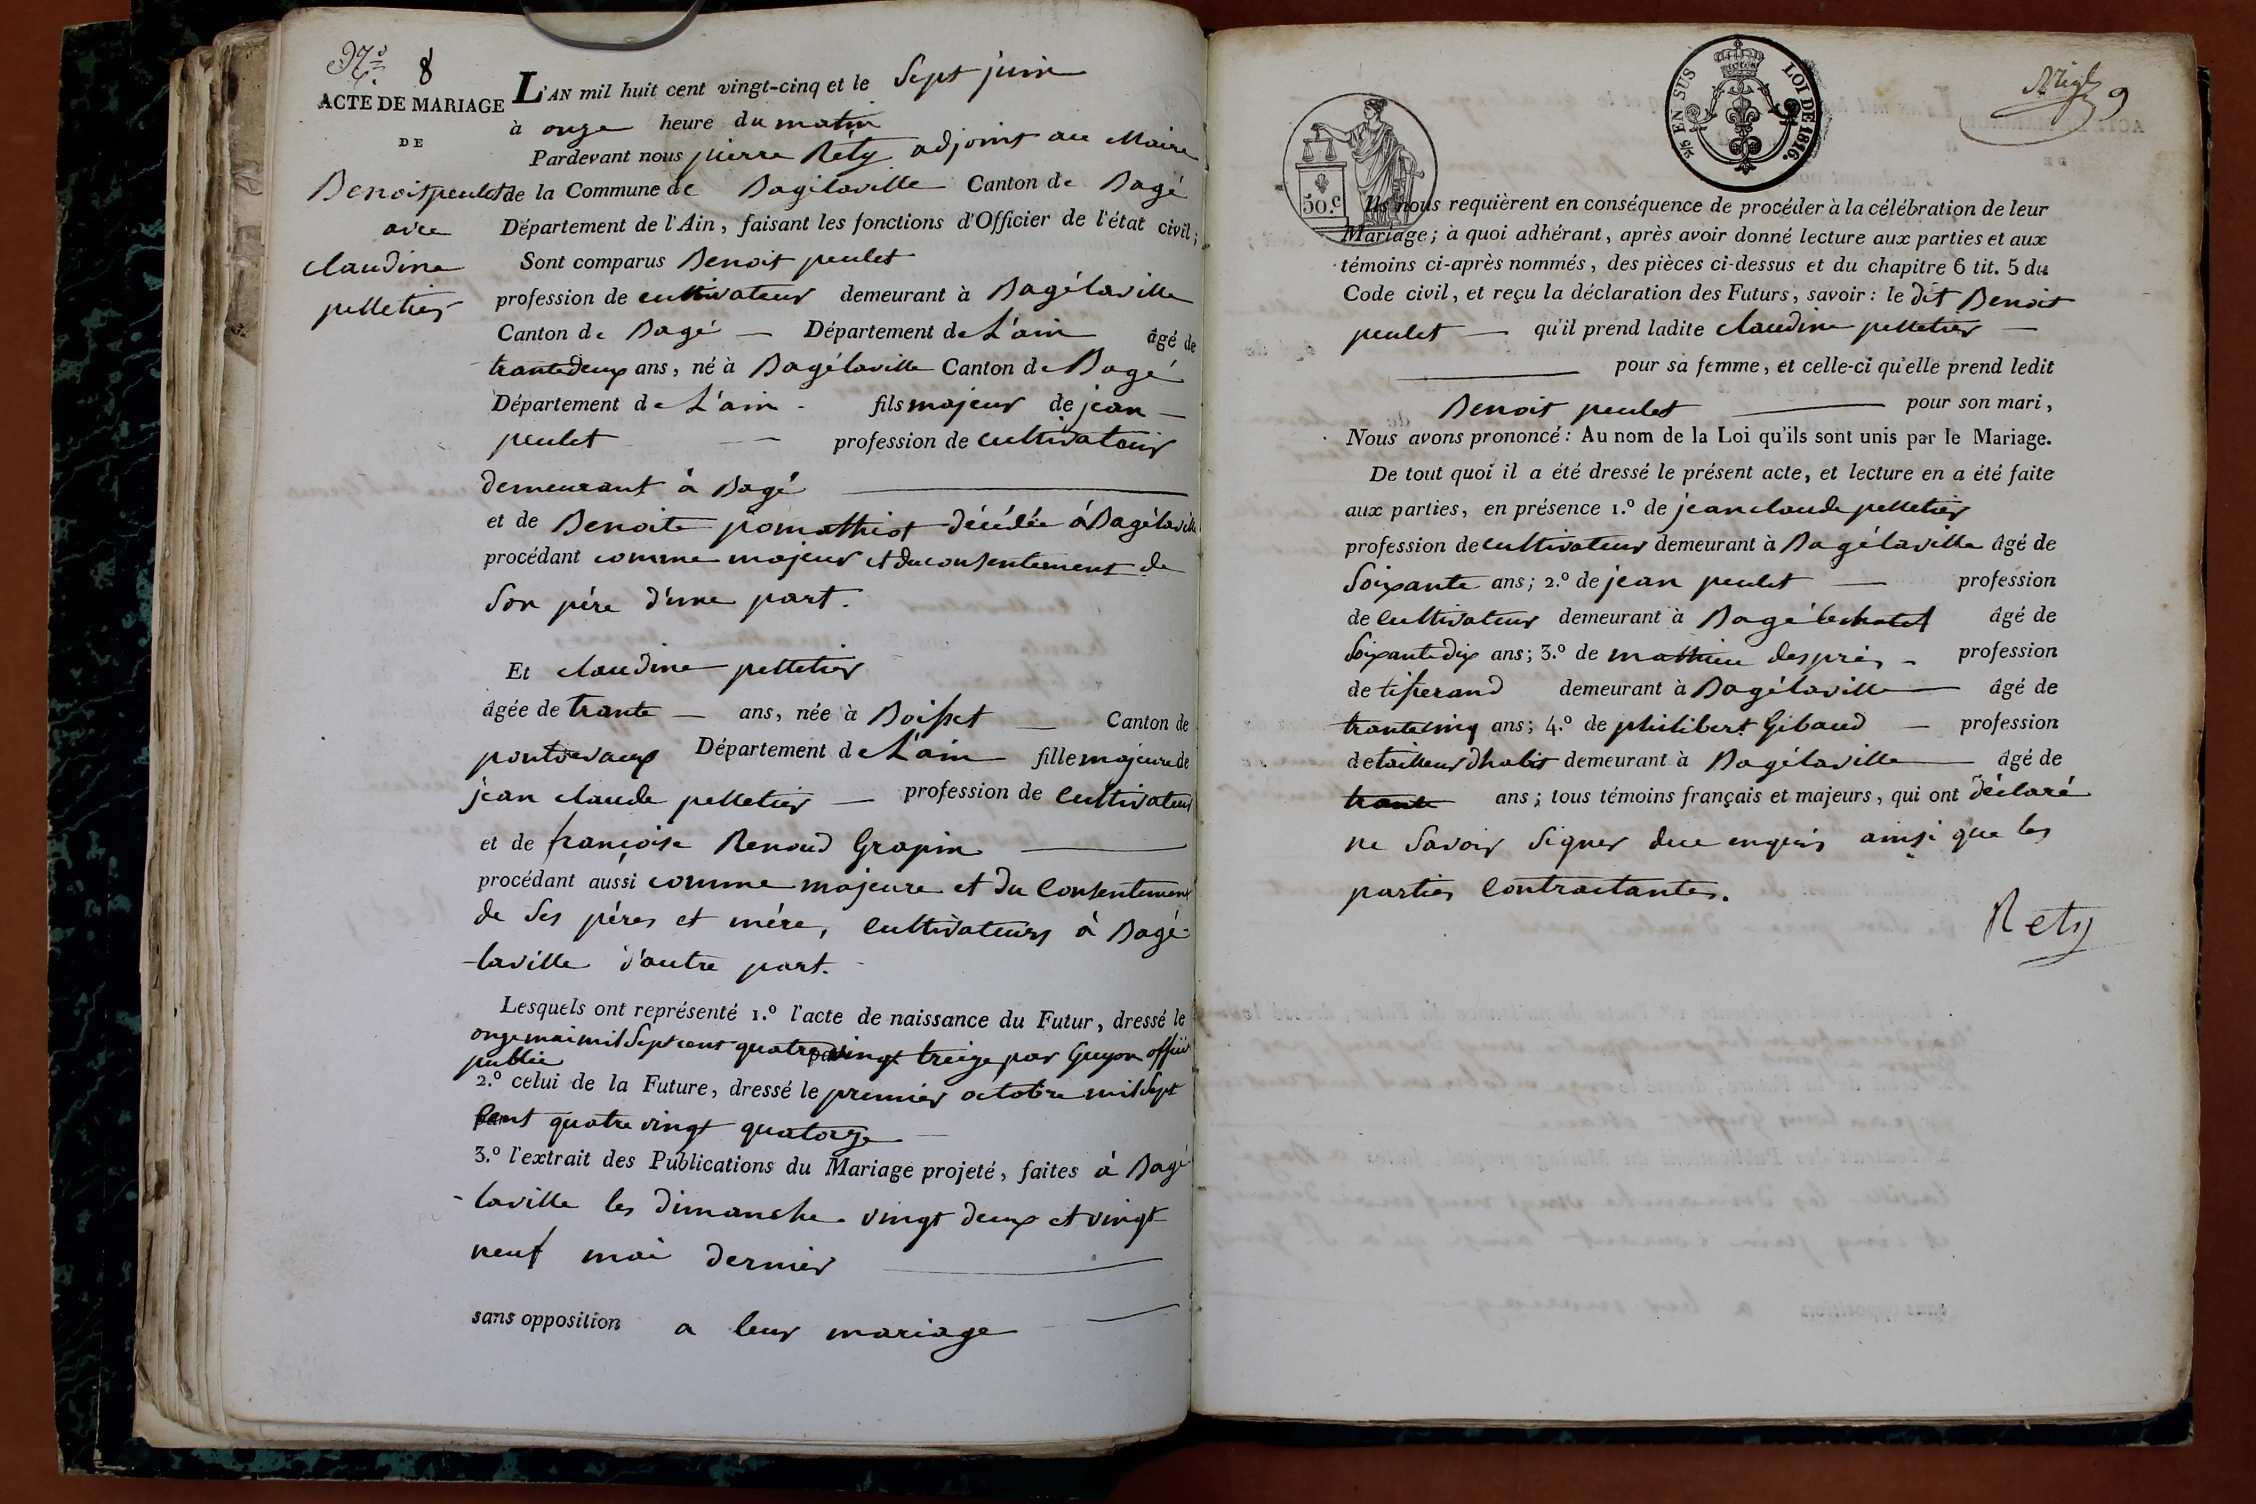 N.º 8
ACTE DE MARIAGE
DE
Benoit peulet
avec
claudine
pelletier
L'AN mil huit cent vingt-cinq et le Sept juin
à onze heure du matin
Pardevant nous pierre Réty adjoint au Maire
de la Commune de Bagélaville Canton de Bagé
Département de l'Ain, faisant les fonctions d'Officier de l'état civil;
Sont comparus Benoit peulet
profession de cultivateur demeurant à Bagélaville
Canton de Bagé Département de L'ain âgé de
trantedeux ans, né à Bagélaville Canton de Bagé
Département de L'ain fils majeur de jean
peulet profession de cultivateur
demeurant à Bagé
et de Benoite pomathiot décédée à Bagélaville
procédant comme majeur et du consentement de
Son pére d'une part.
Et claudine pelletier
âgée de trante ans, née à Boisset Canton de
pontdevaux Département de L'ain fille majeure de
jean claude pelletier profession de cultivateur
et de françoise Renoud Grapin
procédant aussi comme majeure et du Consentement
de Ses péres et mére, cultivateurs à Bagé-
-laville d'autre part.
Lesquels ont représenté 1.º l'acte de naissance du Futur, dressé le
onze mai mil Sept cent quatre vingt treize par Guyon officier
public
2.º celui de la Future, dressé le premier octobre mil Sept
Cent quatre vingt quatorze
3.º l'extrait des Publications du Mariage projeté, faites à Bagé
-laville les dimanche vingt deux et vingt
neuf mai dernier
sans opposition a leur mariage
2/5 EN SUS LOI DE 1816.
9
50.c
Ils nous requièrent en conséquence de procéder à la célébration de leur
Mariage; à quoi adhérant, après avoir donné lecture aux parties et aux
témoins ci-après nommés, des pièces ci-dessus et du chapitre 6 tit. 5 du
Code civil, et reçu la déclaration des Futurs, savoir: le dit Benoit
peulet qu'il prend ladite claudine pelletier
pour sa femme, et celle-ci qu'elle prend ledit
Benoit peulet pour son mari,
Nous avons prononcé: Au nom de la Loi qu'ils sont unis par le Mariage.
De tout quoi il a été dressé le présent acte, et lecture en a été faite
aux parties, en présence 1.º de jean claude pelletier
profession de cultivateur demeurant à Bagélaville âgé de
Soixante ans; 2.º de jean peulet profession
de cultivateur demeurant à Bagé lechatel âgé de
Soixantedix ans; 3.º de mathieu desprès profession
de tisserand demeurant à Bagélaville âgé de
trantecinq ans; 4.º de philibert Gibaud profession
de tailleur d'habit demeurant à Bagélaville âgé de
trante ans; tous témoins français et majeurs, qui ont déclaré
ne Savoir Signer due enquis ainsi que les
parties Contractantes.
Rety